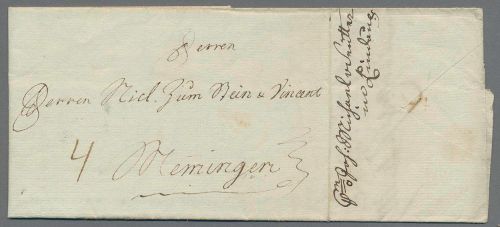 Herren
Herren Nicl. Zum Stein & Vincent
4
Memingen
in Lindau